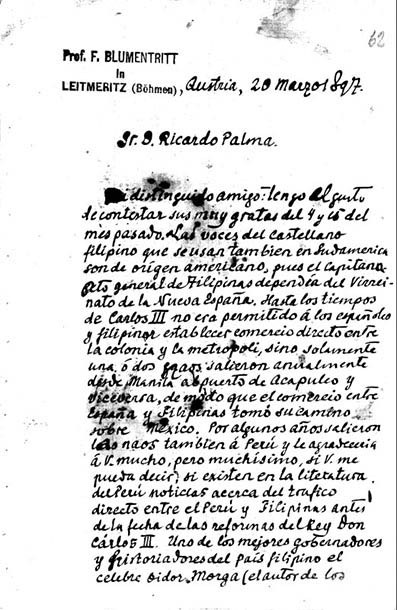 62
Prof. F. BLUMENTRITT
in
LEITMERITZ (Böhmen), Austria, 20 Marzo 1897.
Sr. D. Ricardo Palma.
Mi distinguido amigo: tengo el gusto
de contestar sus muy gratas del 4 y 15 del
mes pasado. Las voces del castellano
filipino que se usan tambien en Sudamerica
son de origen americano, pues el Capitana-
general de Filipinas dependía del Virrei-
nato de la Nueva España. Hasta los tiempos
de Carlos III no era permitido á los españoles
y filipinos establecer comercio directo entre
la colonia y la metropoli, sino solamente
una ó dos naos salieron anualmente
desde Manila al puerto de Acapulco y
viceversa, de modo que el comercio entre
España y Filipinas tomó su camino
sobre Mexico. Por algunos años salieron
las naos tambien á Perú y le agradeceria
á V. mucho, pero muchísimo, si V. me
pueda decir, si existen en la literatura
del Perú noticias acerca del trafico
directo entre el Perú y Filipinas antes
de la fecha de las reformas del Rey Don
Cárlos III. Uno de los mejores gobernadores
y historiadores del pais filipino el
celebre oidor Morga (el autor de los